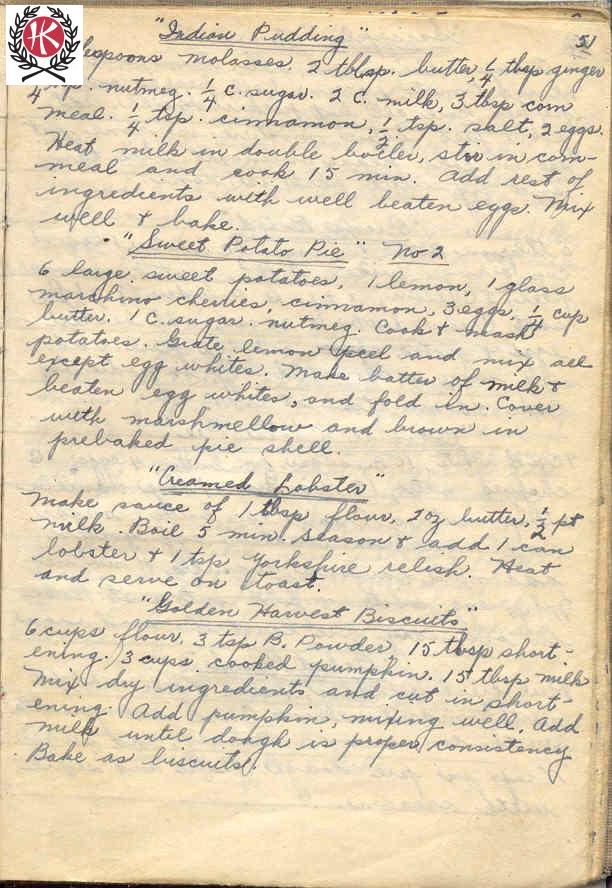 "Indian Pudding" 51
spoons molasses 2 tblsp. butter 1/4 tbsp ginger
1/4 tsp. nutmeg. 1/4 c. sugar. 2 C. milk, 3 tbsp corn
meal. 1/4 tsp. cinnamon, 1/2 tsp. salt, 2 eggs.
Heat milk in double boiler, stir in corn-
meal and cook 15 min. Add rest of
ingredients with well beaten eggs. Mix
well & bake.
"Sweet Potato Pie" No 2
6 large sweet potatoes, 1 lemon, 1 glass
marchino cherries, cinnamon, 3 eggs, 1/4 cup
butter. 1 C. sugar. nutmeg. Cook & mash
potatoes. Grate lemon peel and mix all
except egg whites. Make batter of milk &
beaten egg whites, and fold in. Cover
with marshmellow and brown in
prebaked pie shell.
"Creamed Lobster"
Make sauce of 1 tbsp flour, 2 oz butter, 1/2 pt
milk. Boil 5 min. Season & add 1 can
lobster & 1 tsp Yorkshire relish. Heat
and serve on toast.
"Golden Harvest Biscuits"
6 cups flour. 3 tsp B. Powder, 15 tbsp short-
ening. 3 cups cooked pumpkin. 15 tbsp milk
Mix dry ingredients and cut in short-
ening. Add pumpkin, mixing well. Add
milk until dough is proper consistency
Bake as biscuits.